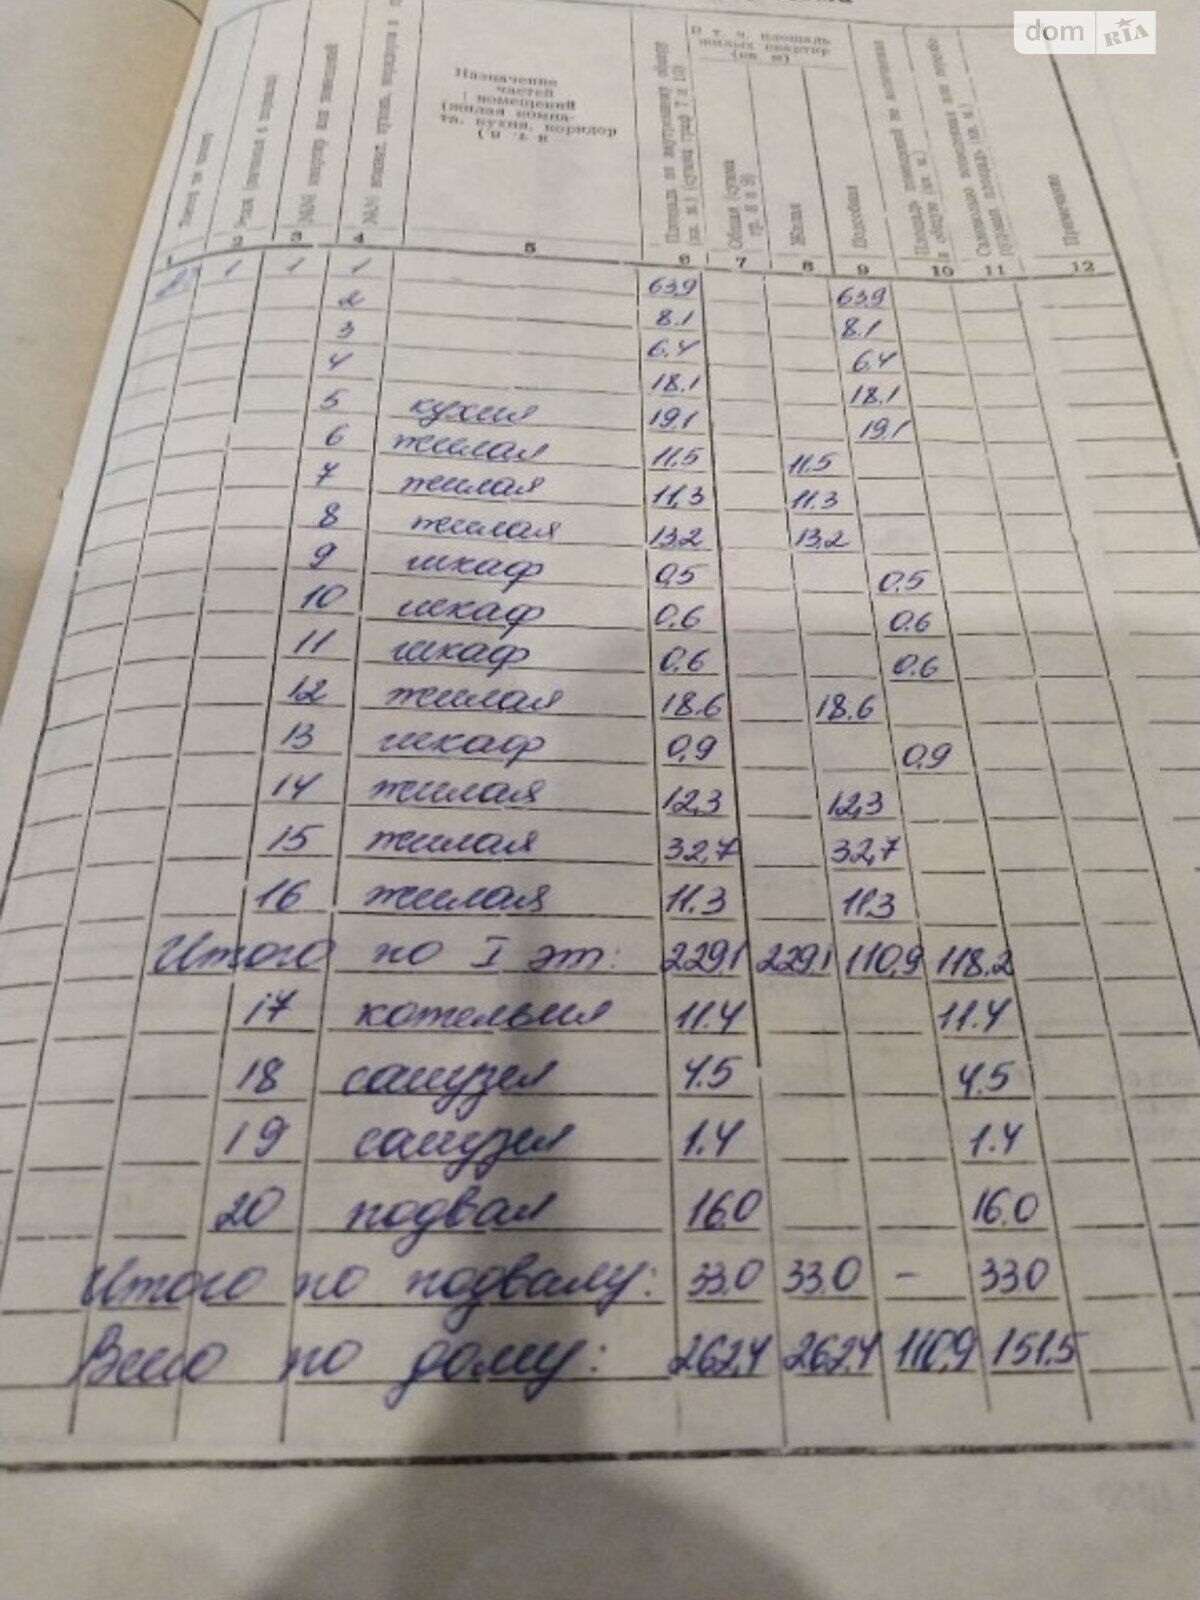 dom RIA
Назначение
частей
помещений
(жилая комна-
та, кухня, коридор
В т. ч. площадь
жилых квартир
(кв. м)
Площадь по внутреннему обмеру
(кв. м.) (сумма граф 7 и 10)
Общая (сумма
гр. 8 и 9)
Жилая
Подсобная
Примечание
1 2 3 4 5 6 7 8 9 10 11 12
1 1 1 63,9 63,9
2 8.1 8.1
3 6.4 6.4
4 18.1 18.1
5 кухня 19,1 19,1
6 жилая 11,5 11,5
7 жилая 11,3 11.3
8 жилая 13,2 13,2
9 шкаф 0,5 0,5
10 шкаф 0,6 0.6
11 шкаф 0,6 0.6
12 жилая 18.6 18.6
13 шкаф 0,9 0,9
14 жилая 12,3 12,3
15 жилая 32,7 32,7
16 жилая 11.3 11,3
Итого по I эт: 229,1 229,1 110,9 118.2
17 котельня 11.4 11.4
18 санузел 4.5 4.5
19 санузел 1.4 1.4
20 подвал 16.0 16.0
Итого по подвалу: 33.0 33.0 – 33.0
Всего по дому: 262,4 262,4 110,9 151.5